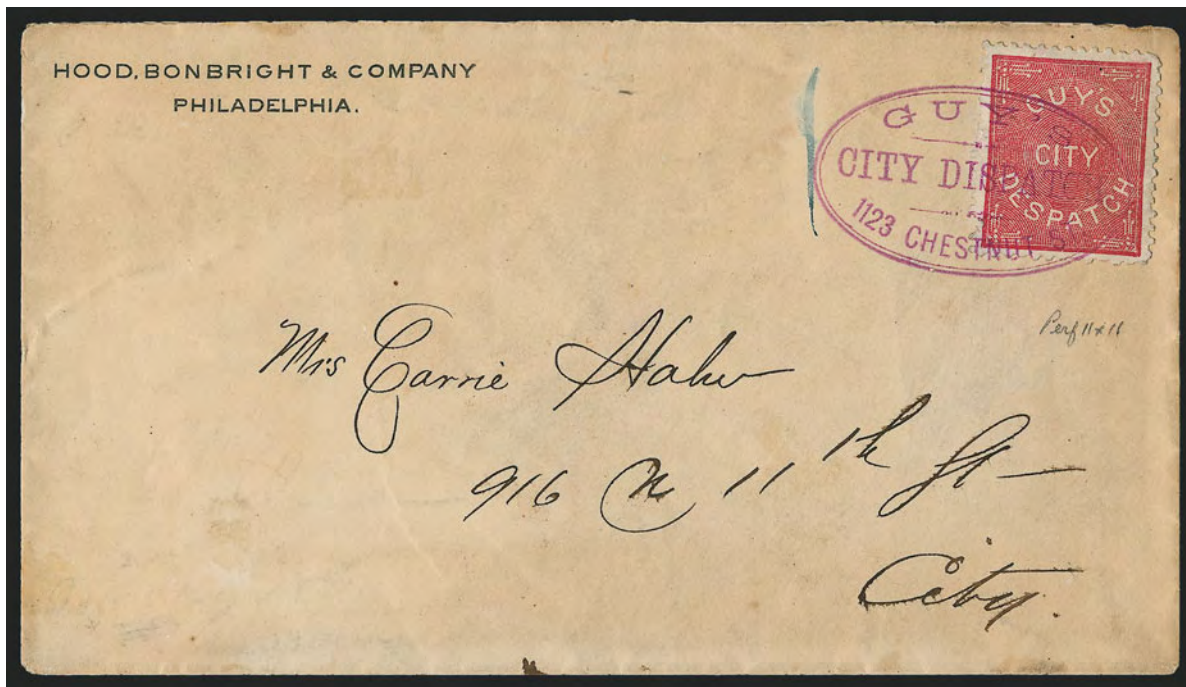 HOOD, BONBRIGHT & COMPANY
PHILADELPHIA.
GUY'S
CITY DISPATCH
1123 CHESTNUT ST.
GUY'S
CITY
DESPATCH
Perf 11x11
Mrs Carrie
916 N 11th St
City.